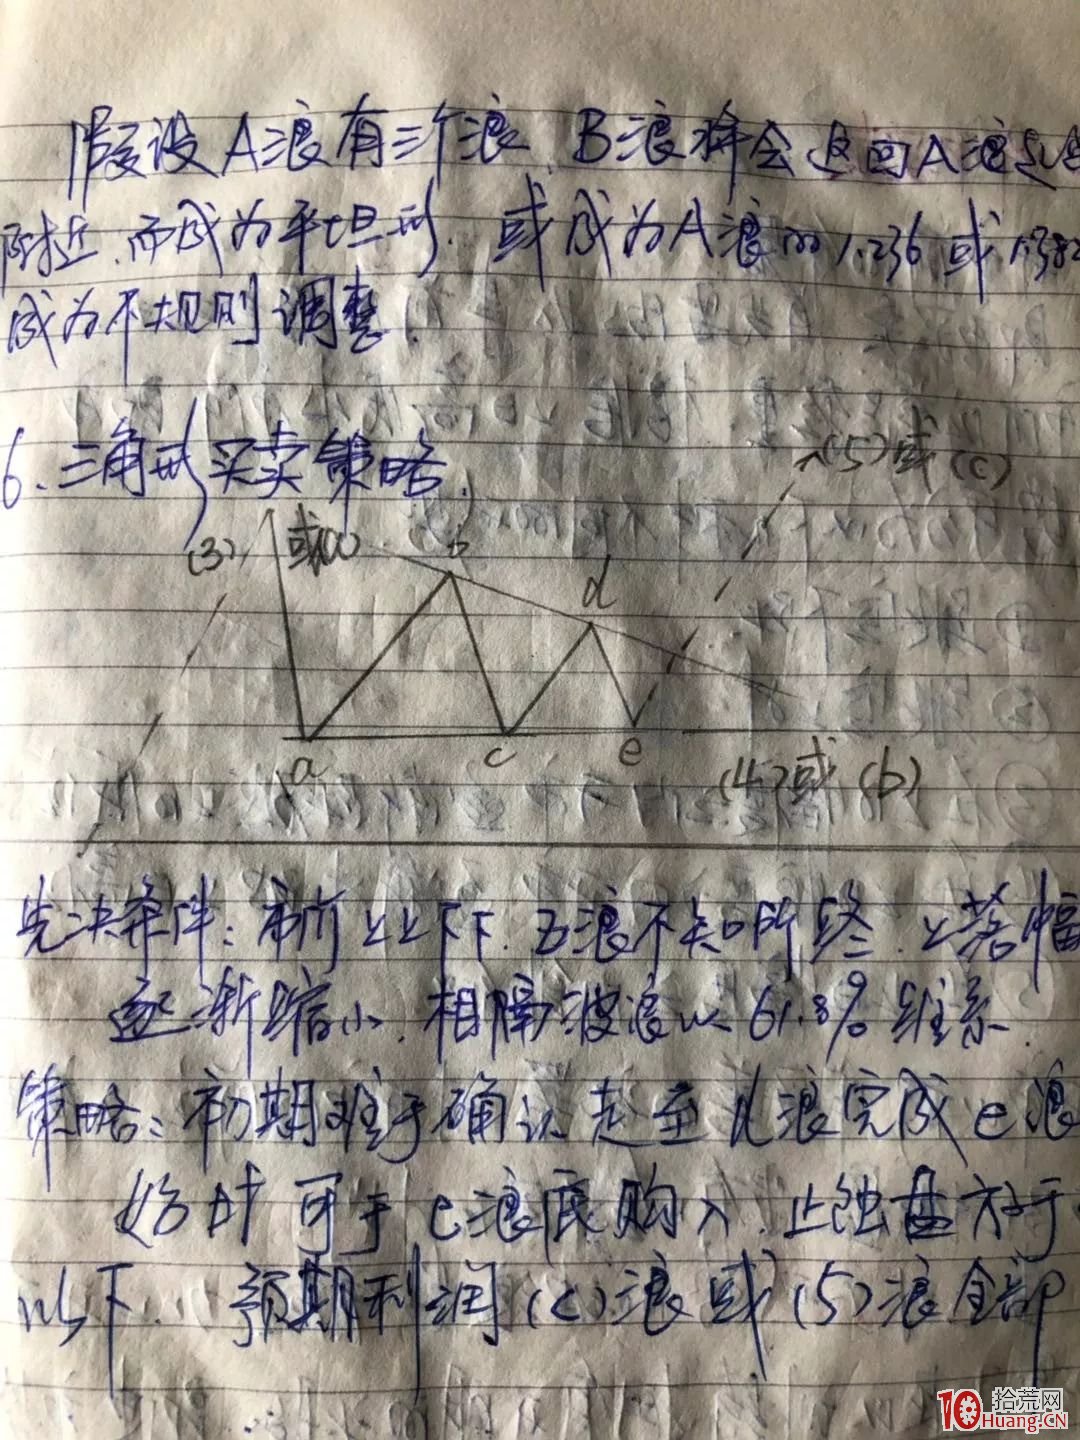 假设A浪有三个浪，B浪将会返回A浪起点
附近，而成为平坦形，或成为A浪的1.236或1.382
成为不规则调整.
6、三角形买卖策略.
(5)或(c)
(3) 或(a) b d
a c e
(4)或(b)
先决条件：市价上上下下，B浪不知所终，上落幅
逐渐缩小，相隔波浪以61.8%维系
策略：初期难于确认走至d浪完成e浪
始时可于e浪底购入，止蚀盘放于
以下. 预期利润(c)浪或(5)浪全部
10 拾荒网
Huang.CN